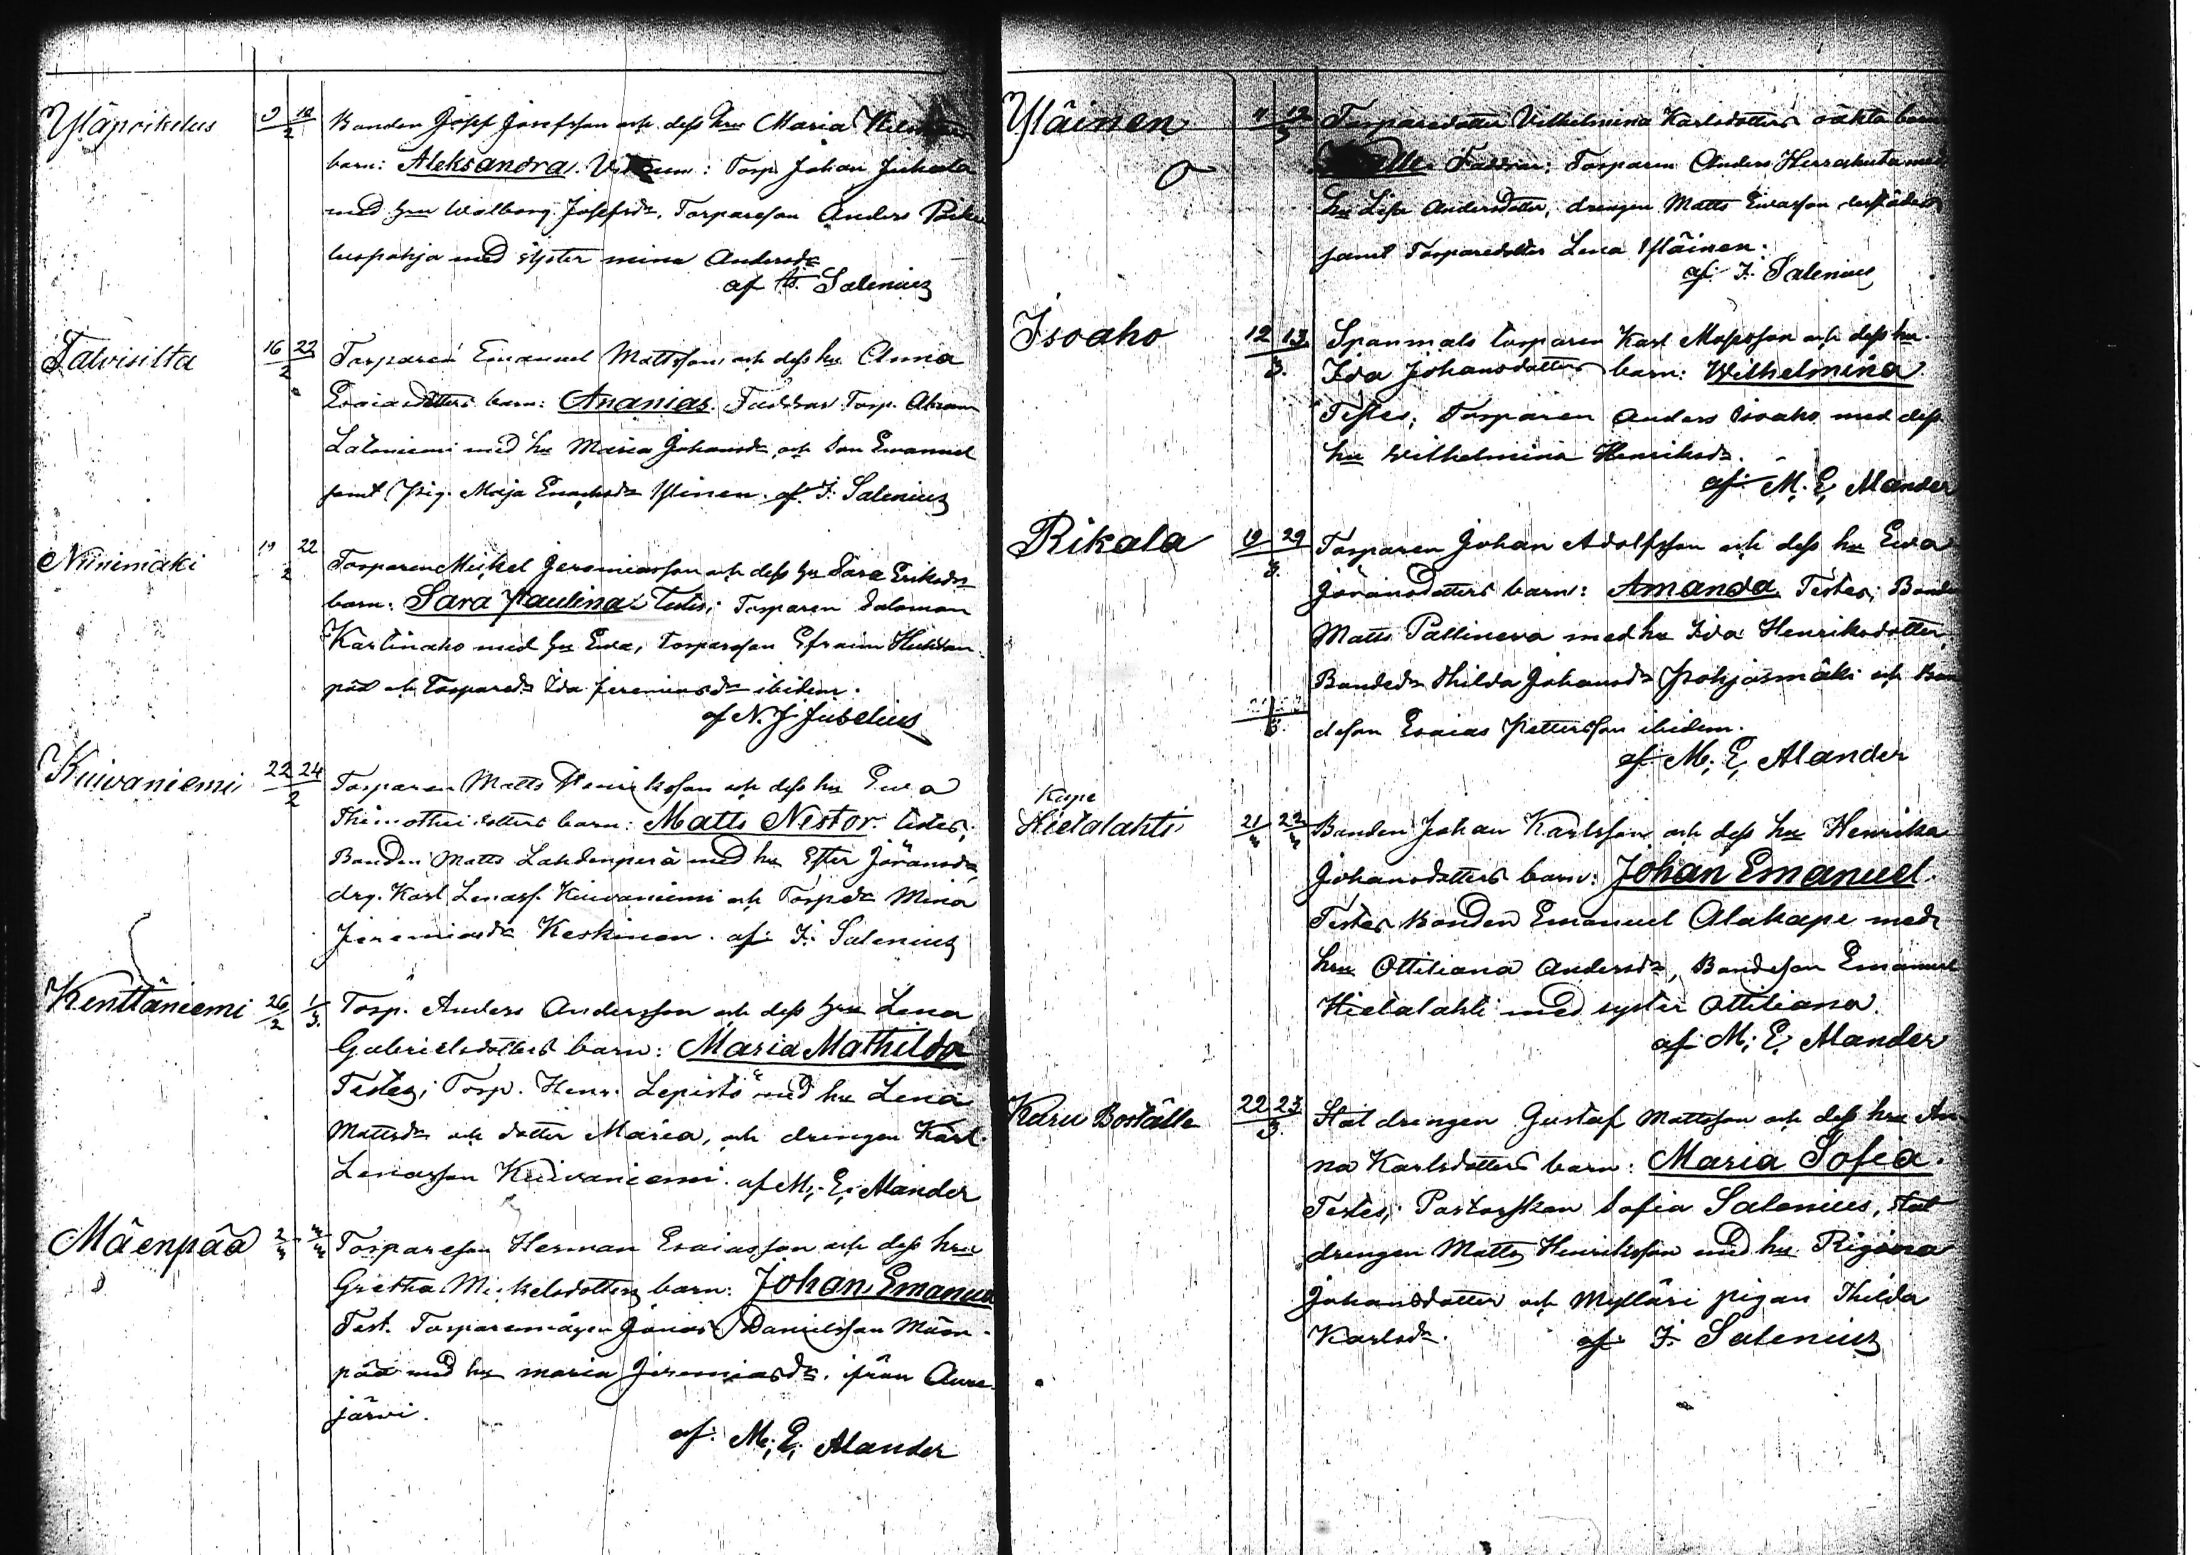 9 10/2 Bonden Josef Josefsson och dess hru Maria
barn: Aleksandra. : Torp. Johan Juhola
med hru Walborg Josefsdr, Torpareson Anders
luspohja med syster mina Andersdr
af Salenius
Talvisilta 16 22/2 Torparen Emanuel Mattsson och dess hu Anna
Esaiasdotters barn: Ananias. Faddrar Torp. Abram
Latoniemi med hu Maria Johansdr och son Emanuel
samt pig. Maja Enochsdr Ylinen. af F. Salenius
Niinimäki 19 22/2 Torparen Mickel Jeremiasson och dess hu Sara Eriksdrs
barn: Sara Paulina Testes; Torparen Salomon
med hu Ewa, torpareson Efraim
pää och Torparedr Ida Jeremiasdr ibidem.
af N. J. Jubelius
Kuivaniemi 22 24/2 Torparen Matts Henriksson och dess hu Ewa
Thimotheidotters barn: Matts Nestor. testes;
Bonden Matts Lahdenperä med hu Ester Jöransdr
drg. Karl Lenass. Kuivaniemi och Torpedr Mina
Jeremiasdr Keskinen. af F. Salenius
Kenttäniemi 26/2 1/3. Torp. Anders Andersson och dess hru Lena
Gabrielsdotters barn: Maria Mathilda
Testes; Torp. Henr. Lepistö med hu Lena
Mattsdr och dotter Maria, och drengen Karl
Lenasson Kuivaniemi. af M. E. Alander
Mäenpää 2/3 Torpareson Herman Esaiasson och dess hru
Gretha Mickelsdotters barn: Johan Emanuel
Test. Torparemågen Jonas Danielsson Mäen-
pää med hu maria Jeremiasdr. från Aure-
järvi.
af M. E. Alander
Yläinen Torparedotter Vilhelmina Karlsdotters oäkta barn
Faddrar; Torparen Anders Herrakuta med
hu Lisa Andersdotter, drengen Matts
samt Torparedotter Lena Yläinen.
af F. Salenius
Isoaho 12 13/3. Spanmåls torparen Karl Mosesson och dess hu
Ida Johansdotters barn: Wilhelmina.
Testes; Torparen Anders Isoaho med dess
hu Wilhelmina Henriksdr.
af M. E. Alander
Rikala 19 29/3. Torparen Johan Adolfsson och dess hu Ewa
Göransdotters barn: Amanda. Testes; Bonden
Matts Pallineva med hu Ida Henriksdotter,
Bondedr Thilda Johansdr Pohjasmäki och Bon
deson Esaias Pettersson ibidem.
af M. E. Alander
Kape
Hietalahti 21/3 22/3 Bonden Johan Karlsson och dess hu Henrika
Johansdotters barn: Johan Emanuel.
Testes Bonden Emanuel Alakape med
hru Ottiliana Andersdr, Bondeson Emanuel
Hietalahti med syster Ottiliana.
af M. E. Alander
Karu Boställe 22 23/3 Stat drengen Gustaf Mattsson och dess hru An
na Karlsdotters barn: Maria Sofia.
Testes; Pastorskan Sofia Salenius, Stat
drengen Matts Henriksson med hu Rigina
Johansdotter och Mylläri pigan Thilda
Karlsdr. af F. Salenius